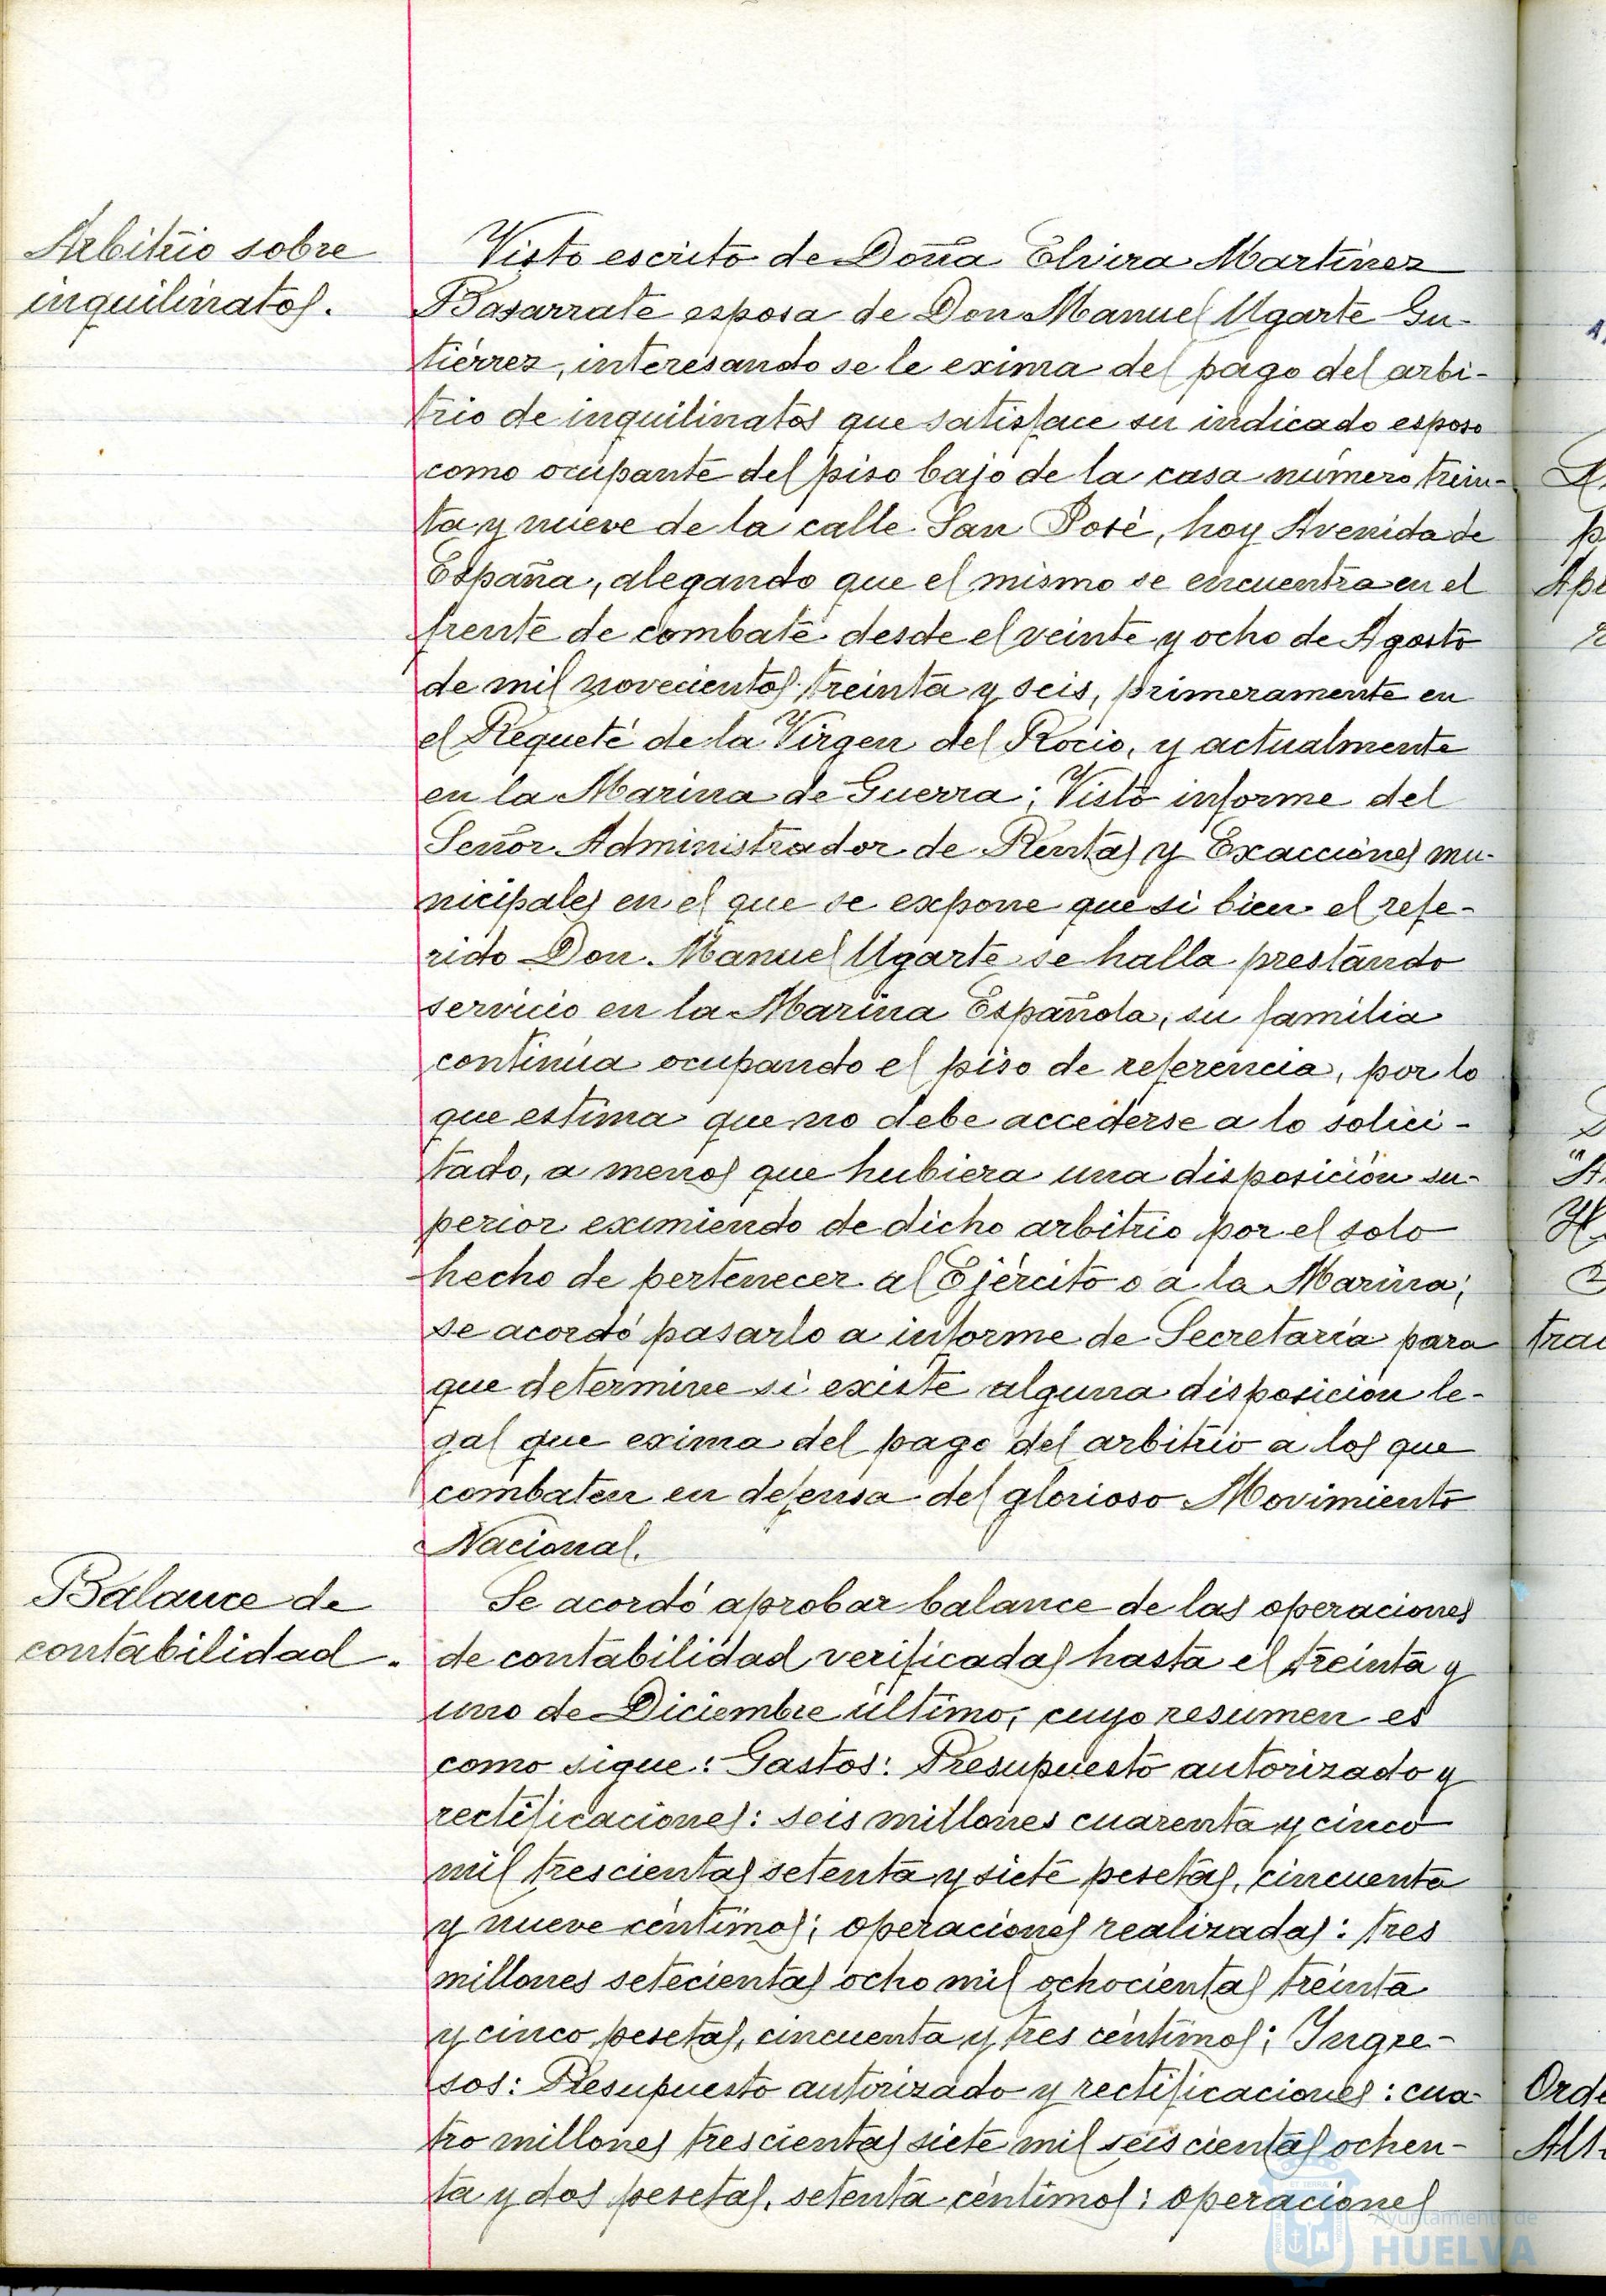 Arbitrio sobre
inquilinatos.
Visto escrito de Doña Elvira Martínez
Basarrate esposa de Don Manuel Ugarte Gu-
tiérrez, interesando se le exima del pago del arbi-
trio de inquilinatos que satisface su indicado esposo
como ocupante del piso bajo de la casa número trein-
ta y nueve de la calle San José, hoy Avenida de
España, alegando que el mismo se encuentra en el
frente de combate desde el veinte y ocho de Agosto
de mil novecientos treinta y seis, primeramente en
el Requeté de la Virgen del Rocio, y actualmente
en la Marina de Guerra; Visto informe del
Señor Administrador de Rentas y Exacciones mu-
nicipales en el que se expone que si bien el refe-
rido Don Manuel Ugarte se halla prestando
servicio en la Marina Española, su familia
continúa ocupando el piso de referencia, por lo
que estima que no debe accederse a lo solici-
tado, a menos que hubiera una disposición su-
perior eximiendo de dicho arbitrio por el solo
hecho de pertenecer al Ejército o a la Marina;
se acordó pasarlo a informe de Secretaría para
que determine si existe alguna disposición le-
gal que exima del pago del arbitrio a los que
combaten en defensa del glorioso Movimiento
Nacional.
Balance de
contabilidad.
Se acordó aprobar balance de las operaciones
de contabilidad verificadas hasta el treinta y
uno de Diciembre último, cuyo resumen es
como sigue: Gastos: Presupuesto autorizado y
rectificaciones: seis millones cuarenta y cinco
mil trescientas setenta y siete pesetas, cincuenta
y nueve céntimos; operaciones realizadas: tres
millones setecientas ocho mil ochocientas treinta
y cinco pesetas, cincuenta y tres céntimos; Ingre-
sos: Presupuesto autorizado y rectificaciones: cua-
tro millones trescientas siete mil seiscientas ochen-
ta y dos pesetas, setenta céntimos; operaciones
Ayuntamiento de
HUELVA